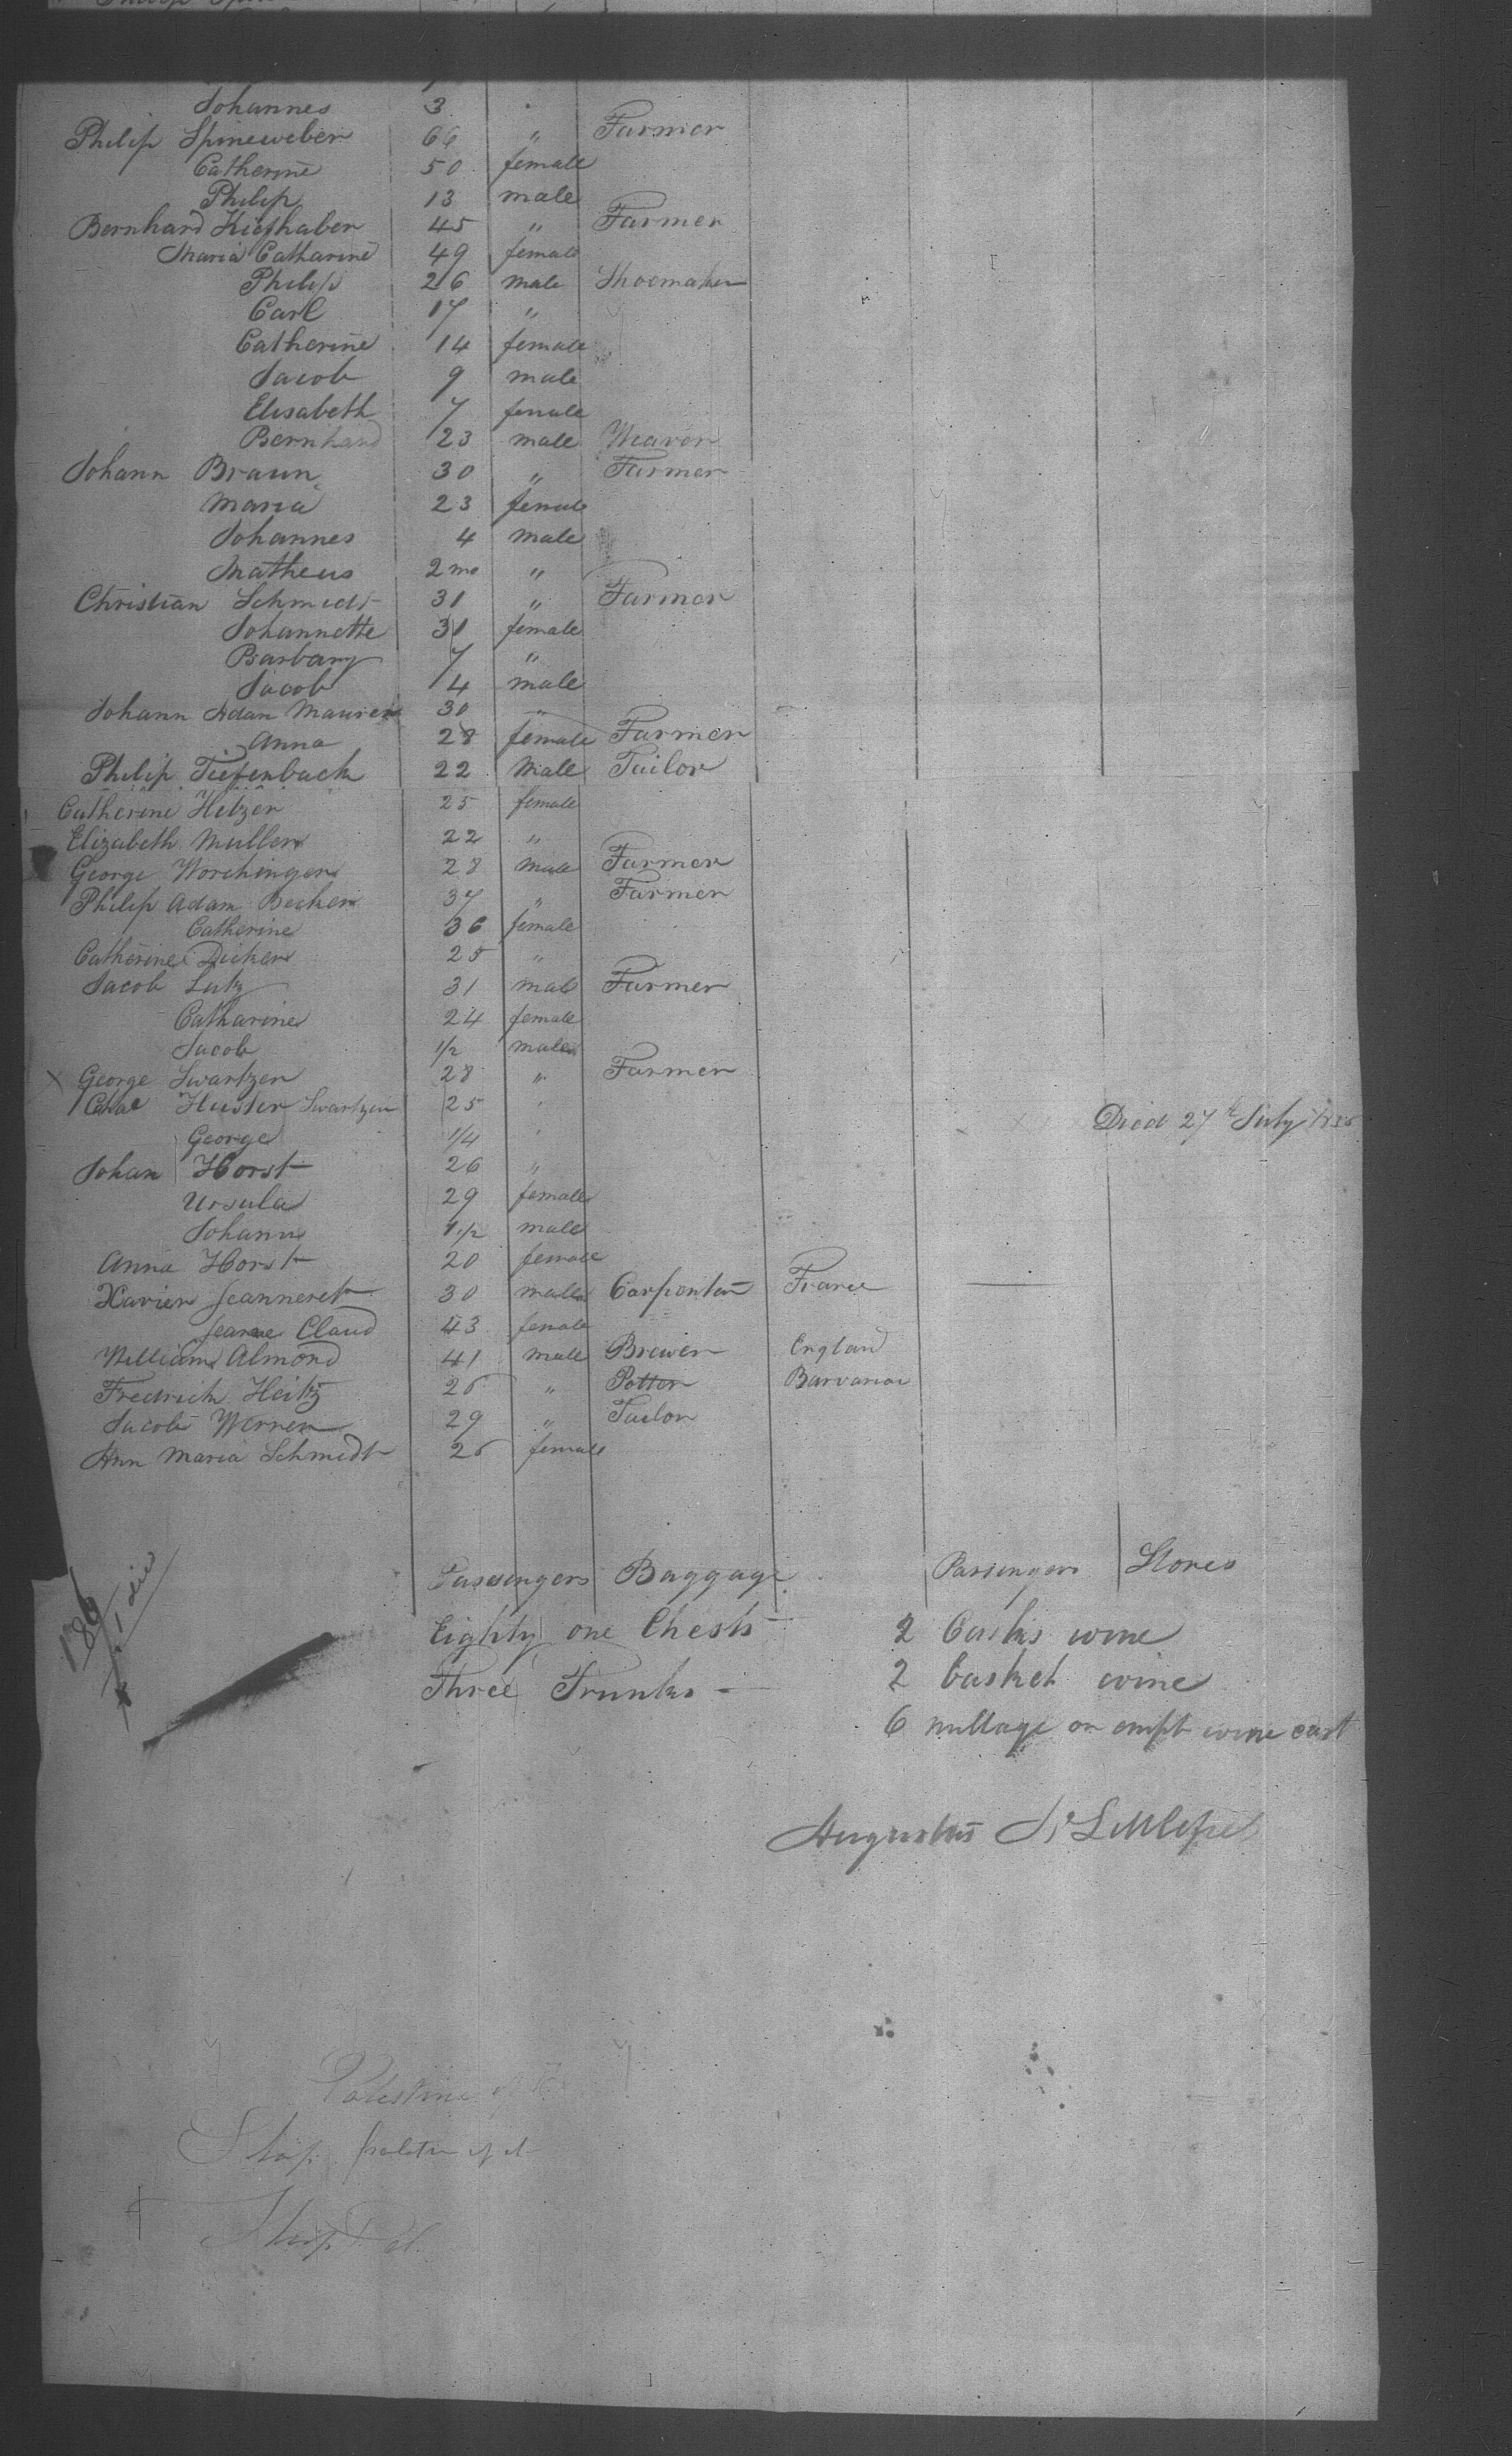 Johannes 3 "
Philip Spineweber 66 " Farmer
Catherine 50 female
Philip 13 male
Bernhard Kiefhaber 45 " Farmer
Maria Catharine 49 female
Philip 26 male Shoemaker
Carl 17 "
Catherine 14 female
Jacob 9 male
Elisabeth 7 female
Bernhard 23 male Weaver
Johann Braun 30 " Farmer
Maria 23 female
Johannes 4 male
Matheus 2 mo "
Christian Schmidt 31 " Farmer
Johannette 31 female
Barbary 7 "
Jacob 4 male
Johann Adam Maurer 30 "
Anna 28 female Farmer
Philip Tiefenback 22 Male Tailor
Catherine Hetzer 25 female
Elizabeth Muller 22 "
George Worchinger 28 male Farmer
Philip Adam Becker 37 " Farmer
Catherine 36 female
Catherine Dicker 25 "
Jacob Lutz 31 male Farmer
Catharine 24 female
Jacob 1/2 male
X George Swartzen 28 " Farmer
Huster Swartzen 25 "
George 1/4 " Died 27th July
Johan Horst 26 "
Ursula 29 female
Johann 1 1/2 male
Anna Horst 20 female
Xavier Jeanneret 30 male Carpenter France
Jeanne Claud 43 female
William Almond 41 male Brewer England
Fredrich Heitz 26 " Potter Barvaria
Jacob Werner 29 " Tailor
Ann Maria Schmidt 26 female
Passengers Baggage Passengers Stores
Eighty one Chests 2 Casks wine
Three Trunks - 2 basket wine
6 on empt wine cast
Augustus
Palestine
Ship
Ship